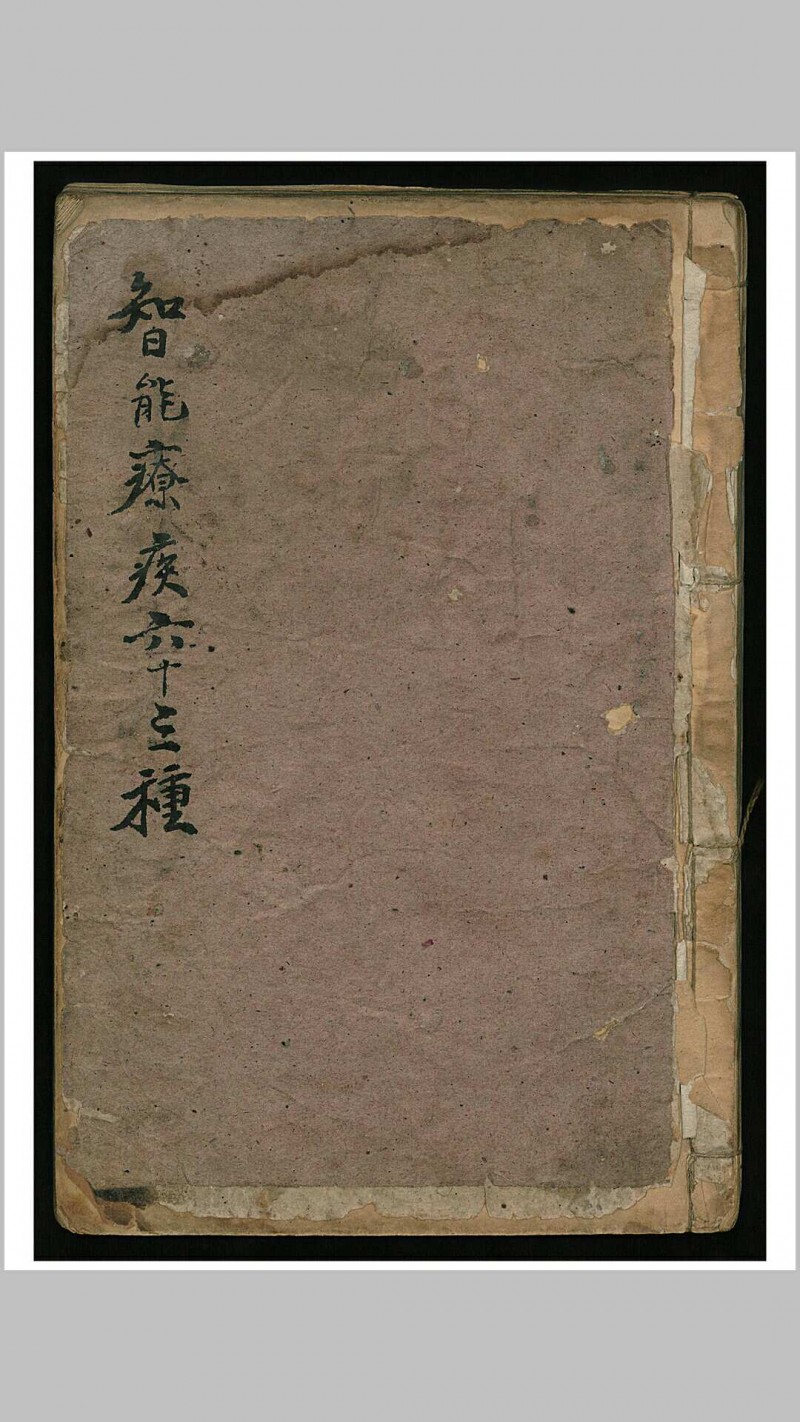 智能療疾六十三種